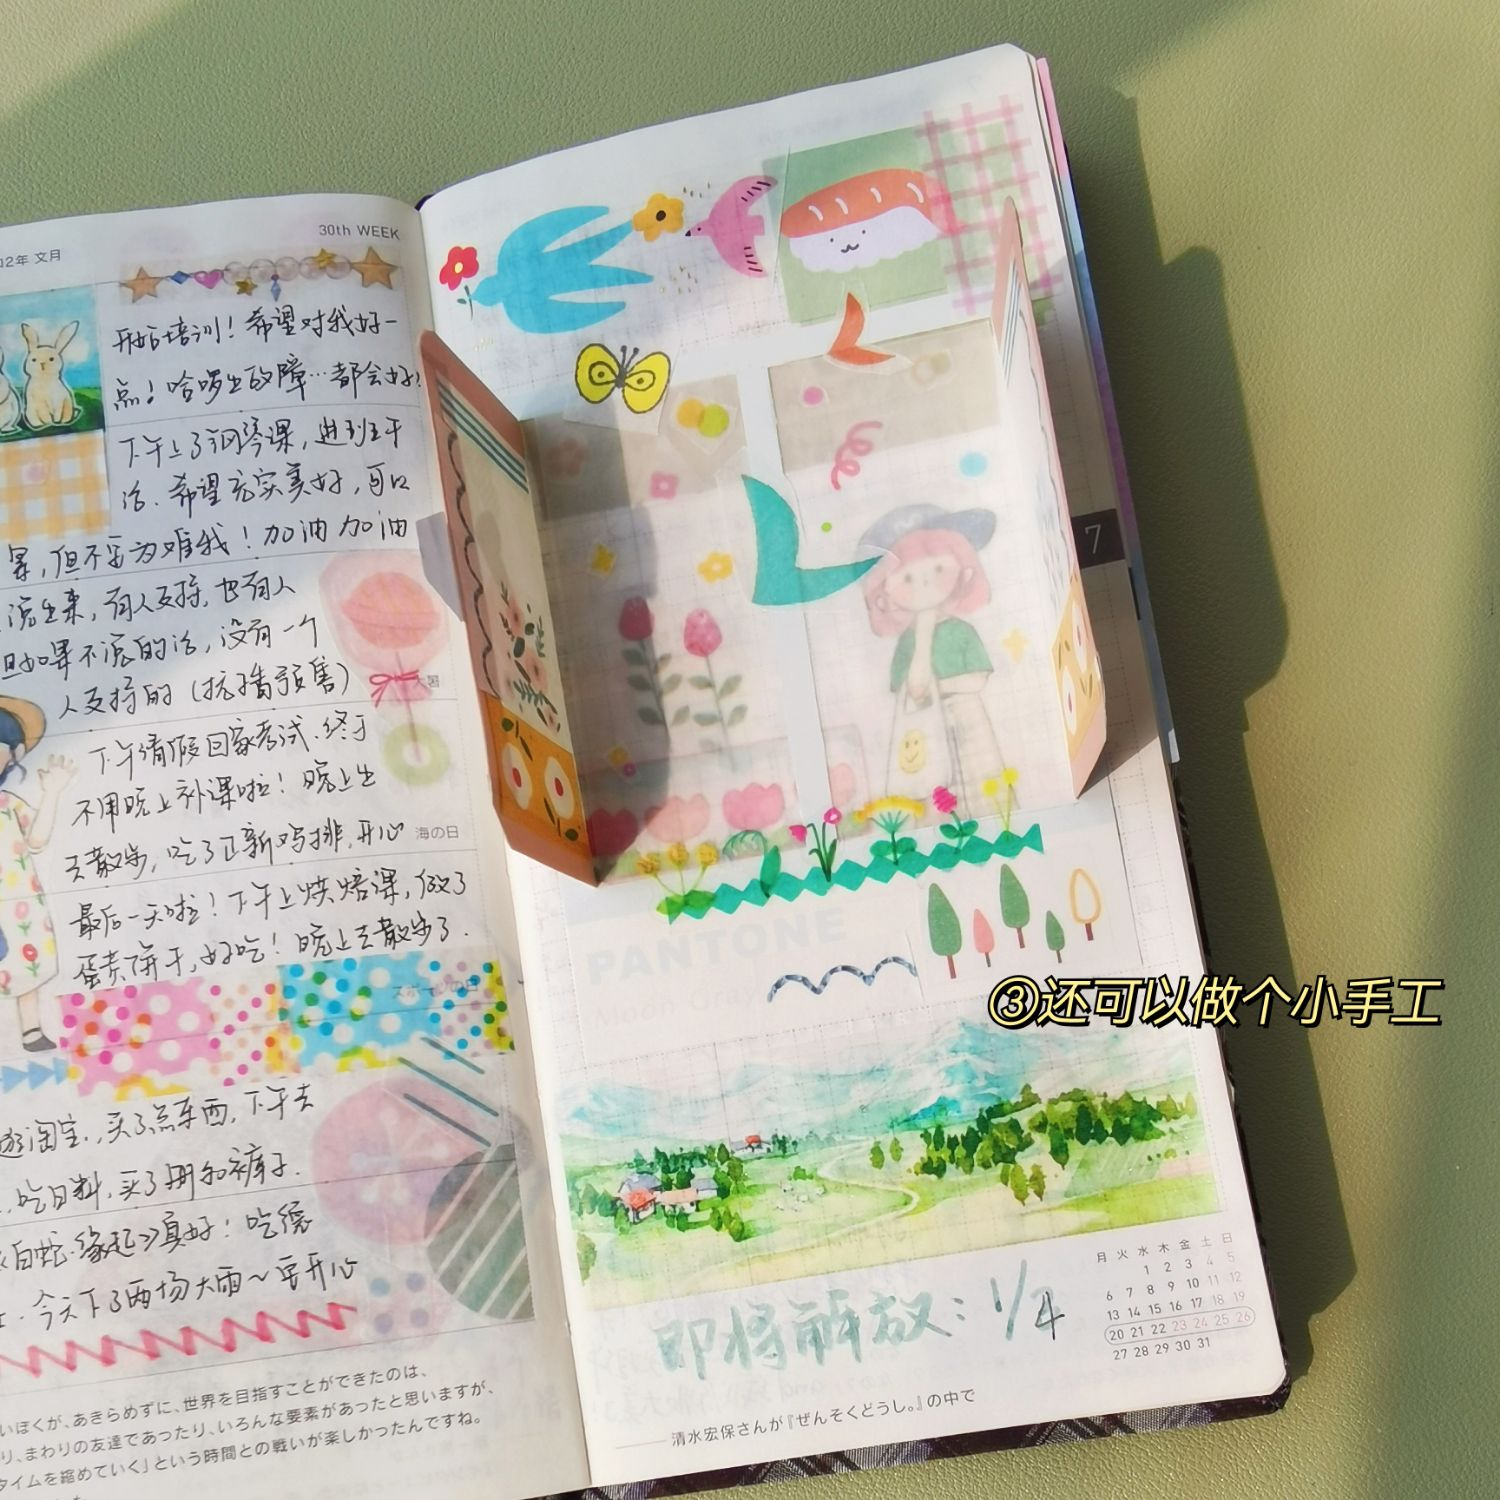 2年 文月
30th WEEK
开始培训！希望对我好一
点！哈啰出故障…都会好！
下午上了钢琴课，进到王干
活.希望充实美好，可以
累，但不要为难我！加油加油
说出来，有人支持，也有人
但如果不说的话，没有一个
人支持的（抗毒预售）
大暑
下午请假回家考试.终于
不用晚上补课啦！晚上出
去散步，吃了正新鸡排，开心
海の日
最后一天啦！下午上烘焙课，做了
蛋黄饼干，好吃！晚上去散步了.
スポーツの日
逛淘宝，买了点东西，下午去
吃日料，买了册和裤子.
白蛇·缘起》真好！吃德
今天下了两场大雨～要开心
いぼくが、あきらめずに、世界を目指すことができたのは、
り、まわりの友達であったり、いろんな要素があったと思いますが、
タイムを縮めていく」という時間との戦いが楽しかったんですね。
7
PANTONE
③还可以做个小手工
即将解放：1/4
月 火 水 木 金 土 日
1 2 3 4 5
6 7 8 9 10 11 12
13 14 15 16 17 18 19
20 21 22 23 24 25 26
27 28 29 30 31
清水宏保さんが『ぜんそくどうし。』の中で